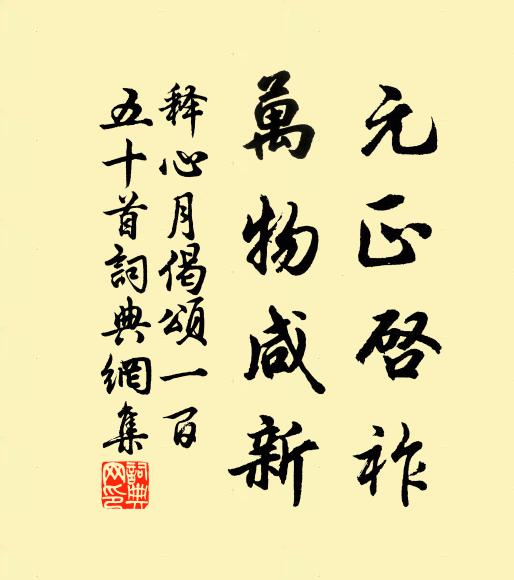 元正啓祚
萬物咸新
释心月偈頌一百
五十首詞典網集
詞典网印